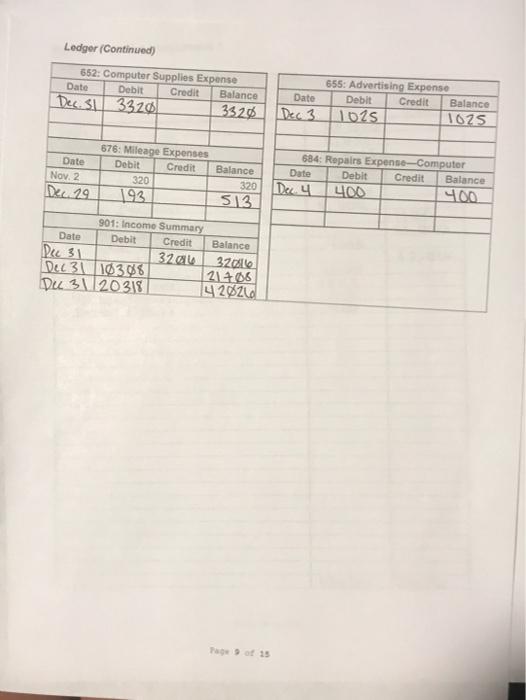 Ledger (Continued)
652: Computer Supplies Expense
Date Debit Credit Balance
Dec. 31 3320 3320
676: Mileage Expenses
Date Debit Credit Balance
Nov. 2 320 320
Dec. 29 193 513
901: Income Summary
Date Debit Credit Balance
Dec 31 32016 32016
Dec 31 10308 21708
Dec 31 20318 42026
655: Advertising Expense
Date Debit Credit Balance
Dec 3 1025 1025
684: Repairs Expense—Computer
Date Debit Credit Balance
Dec. 4 400 400
Page 9 of 15